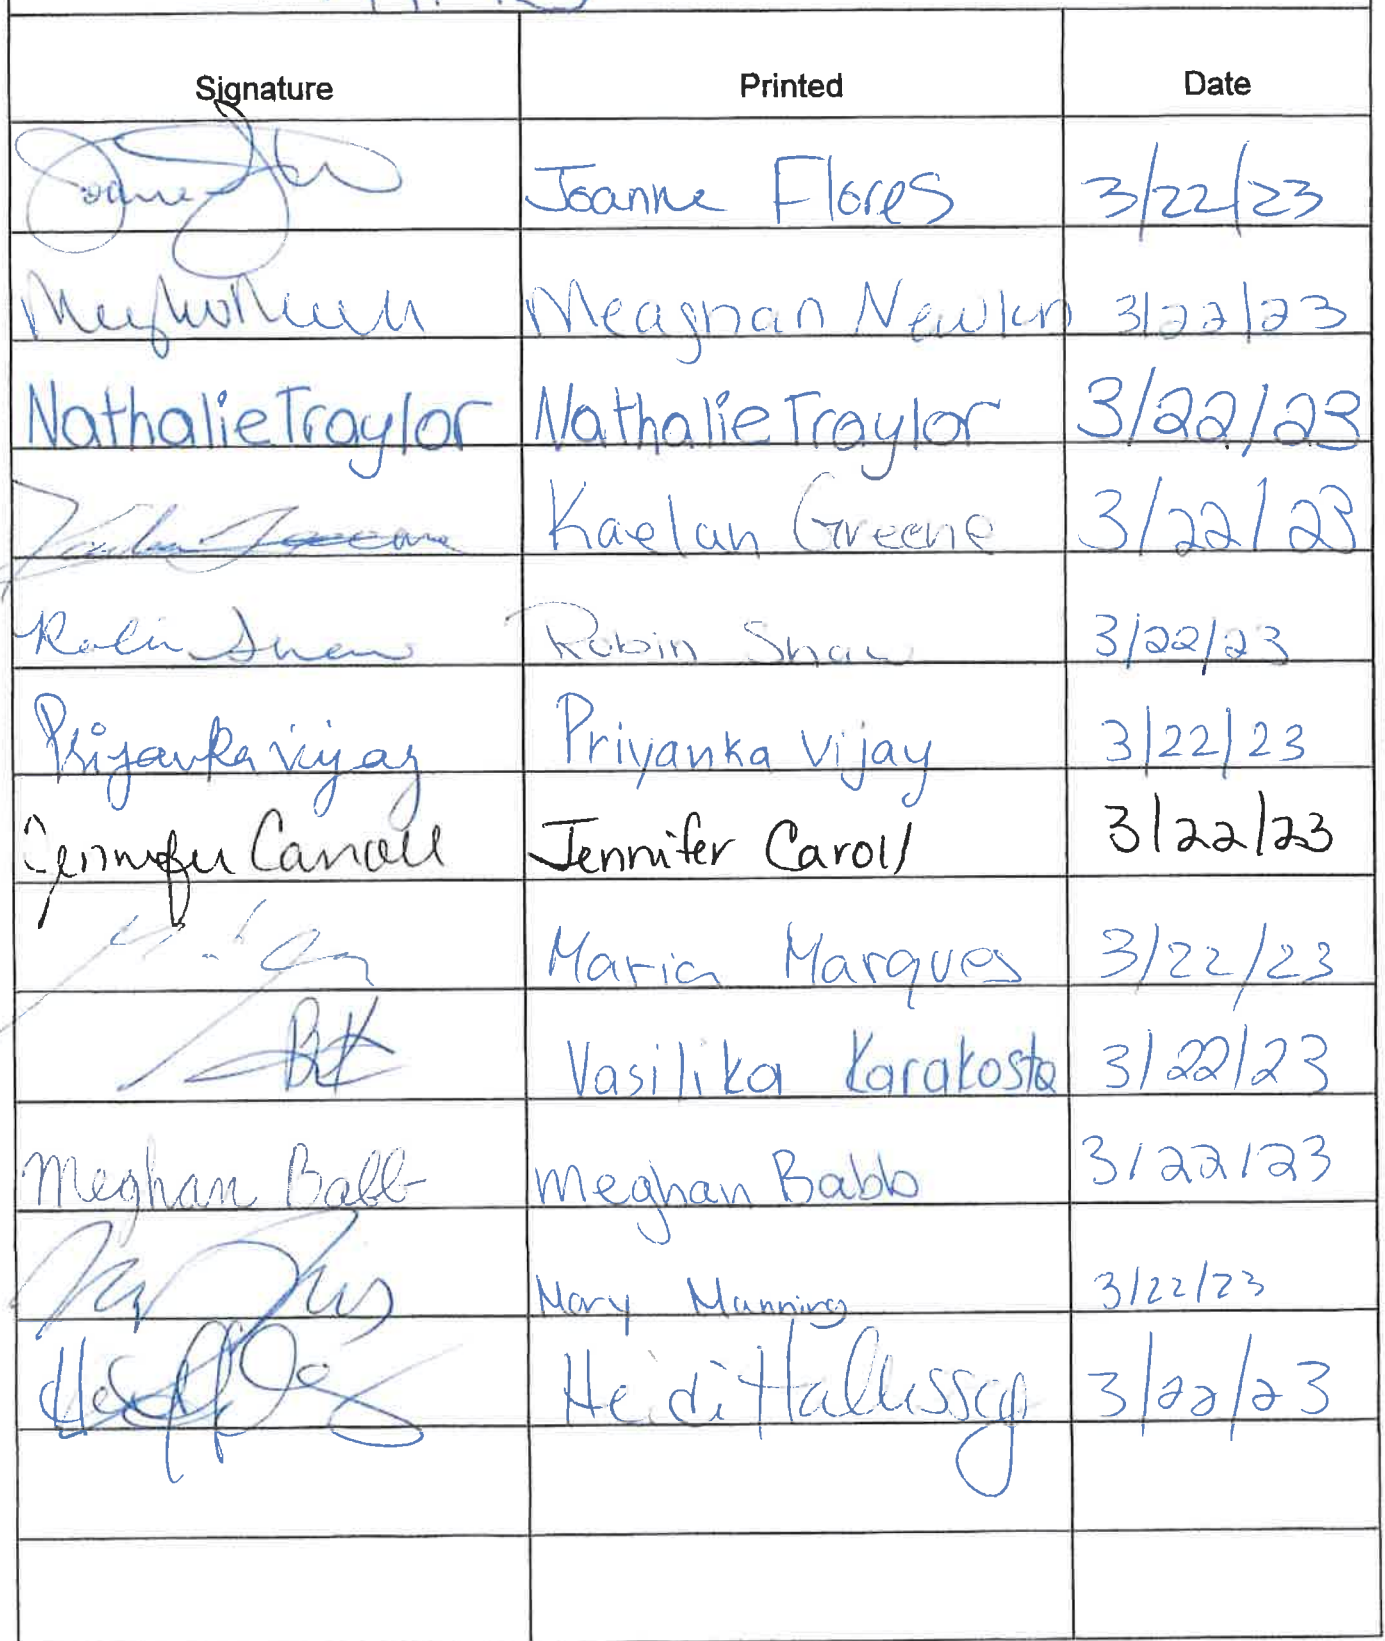 Signature Printed Date
Joanne Flores Joanne Flores 3/22/23
Meaghan Newlin 3/22/23
Nathalie Traylor Nathalie Traylor 3/22/23
Kaelan Greene Kaelan Greene 3/22/23
Robin Shaw Robin Shaw 3/22/23
Priyanka Vijay Priyanka Vijay 3/22/23
Jennifer Carroll Jennifer Caroll 3/22/23
Maria Marques 3/22/23
Vasilika Karakosta 3/22/23
Meghan Babb Meghan Babb 3/22/23
Mary Manning 3/22/23
Heidi 3/22/23